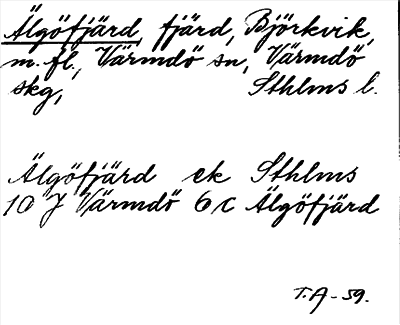 Älgöfjärd, fjärd, Björkvik,
m. fl., Värmdö sn, Värmdö
skg, Sthlms l.
Älgöfjärd ek Sthlms
10 J Värmdö 6 c Älgöfjärd
T. A - 59.